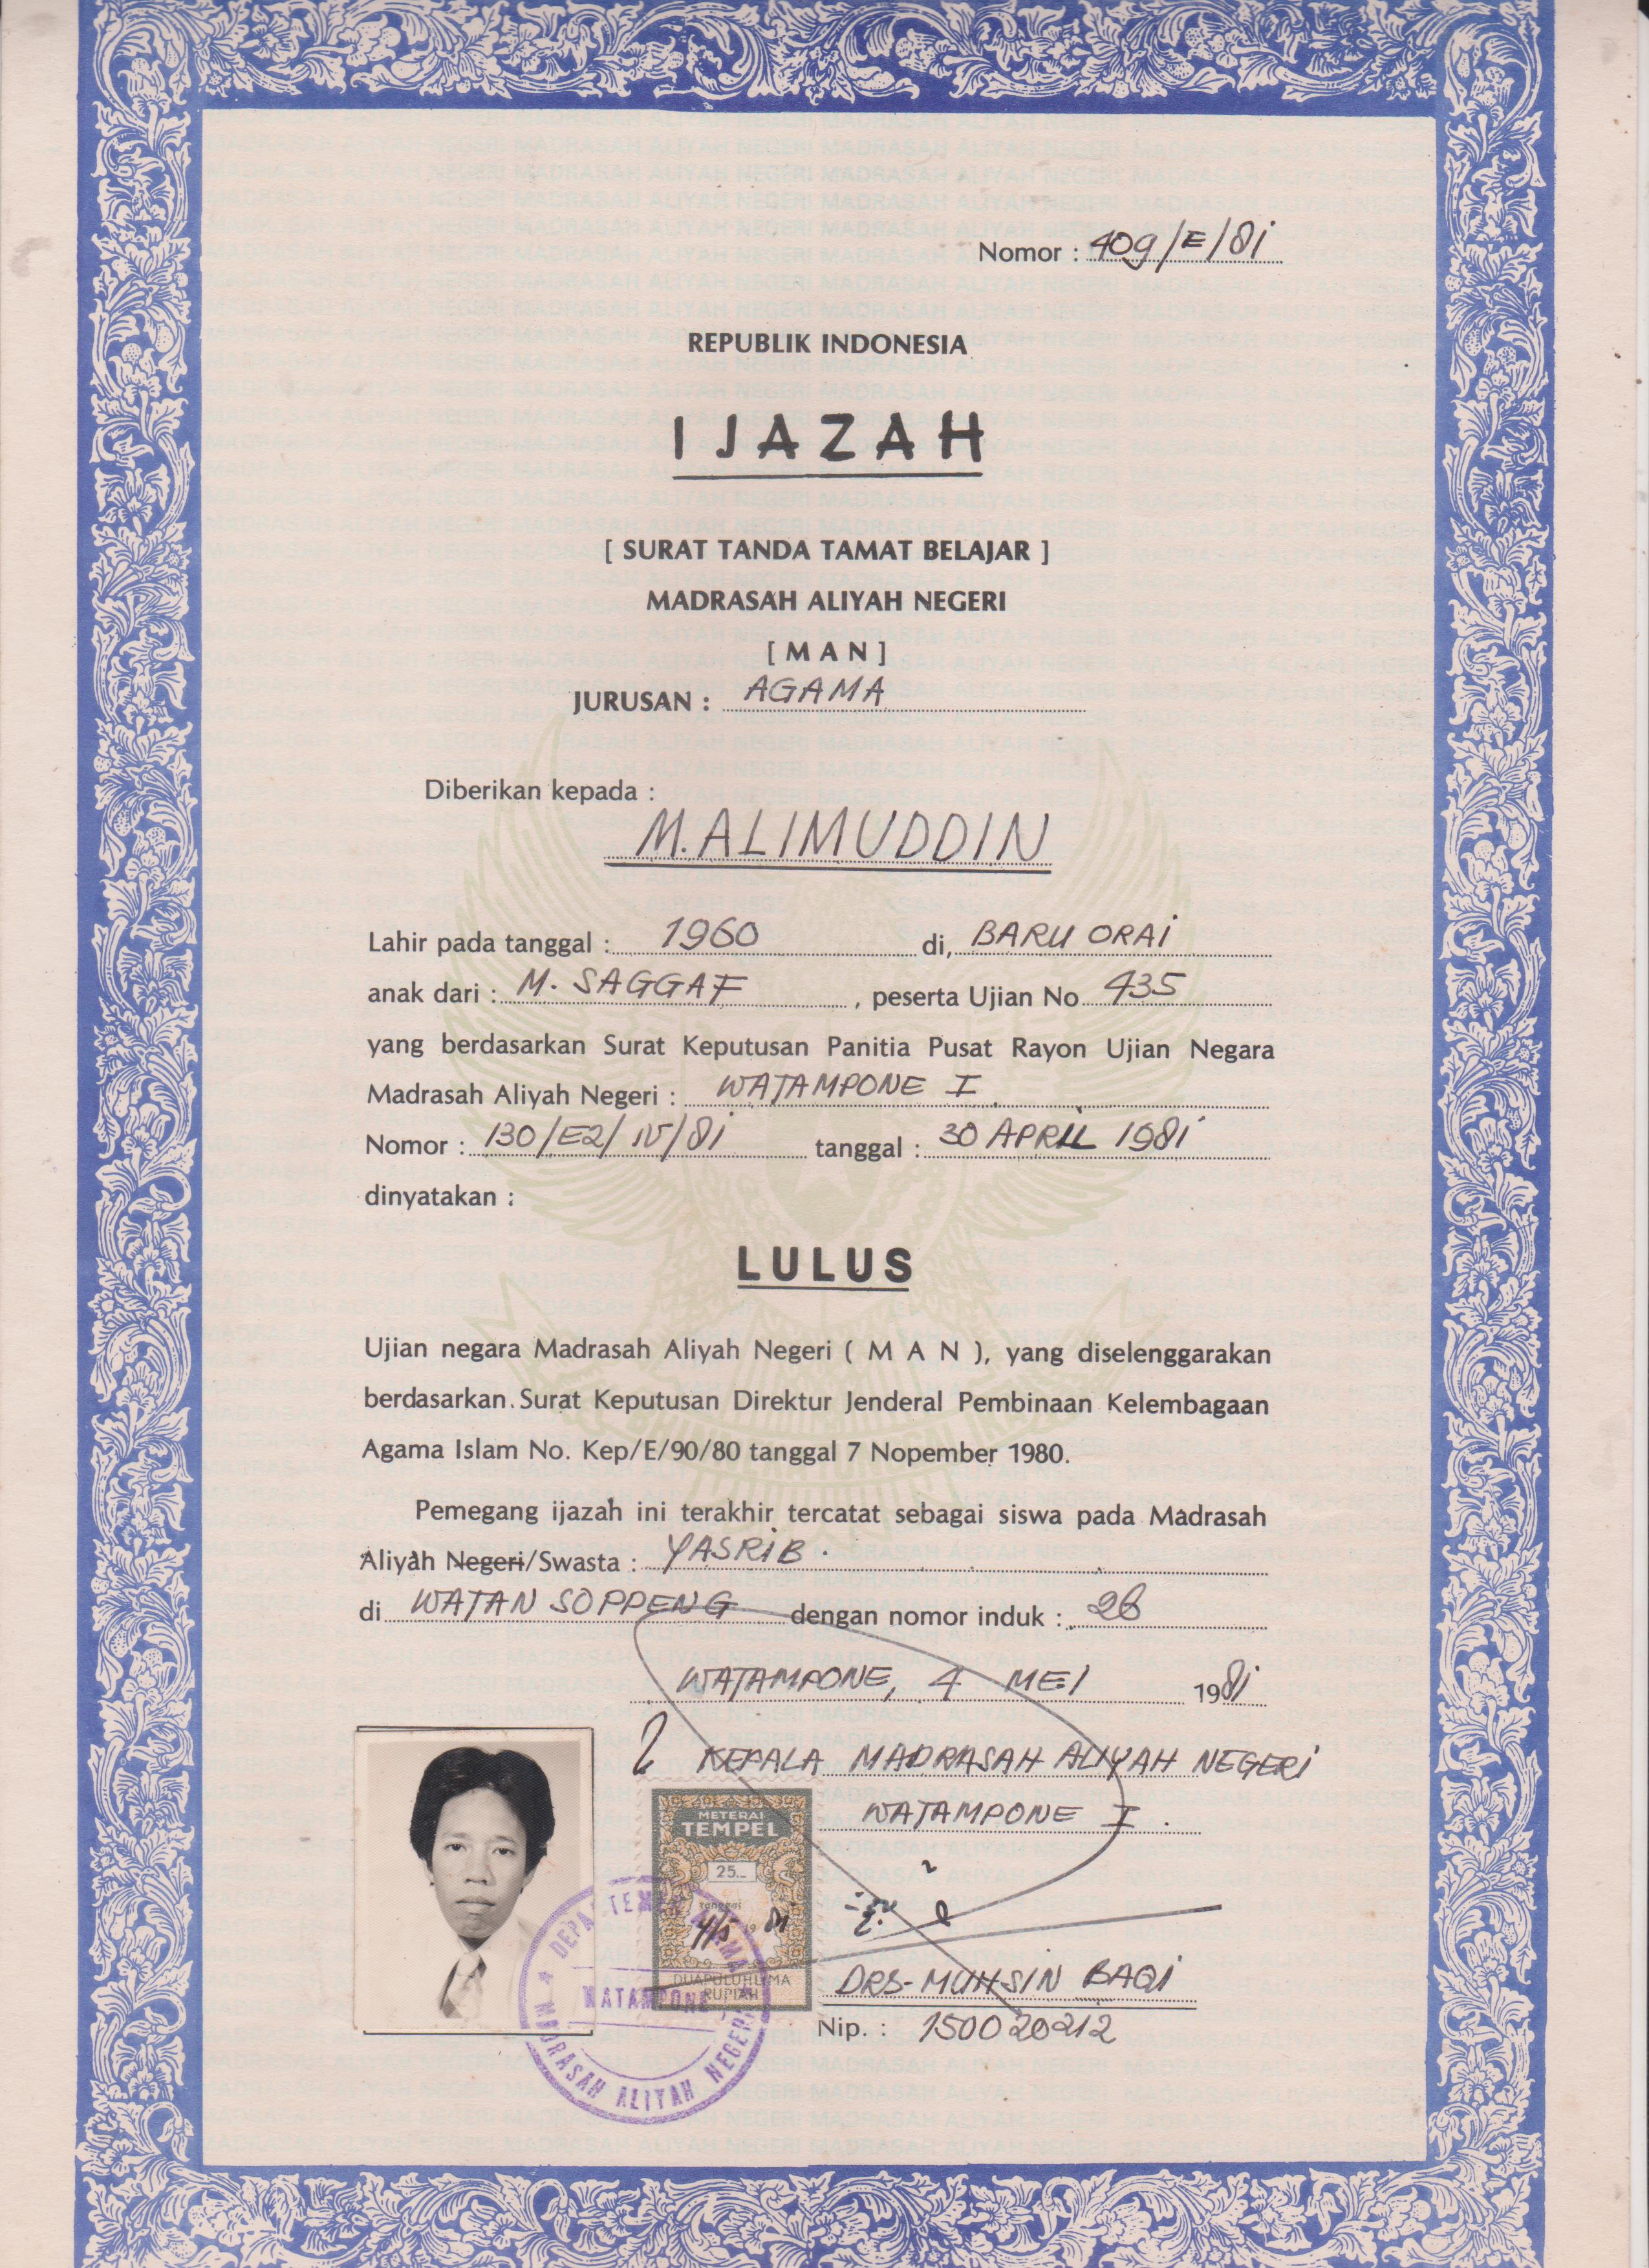 Nomor : 409/E/81
REPUBLIK INDONESIA
IJAZAH
[ SURAT TANDA TAMAT BELAJAR ]
MADRASAH ALIYAH NEGERI
[ M A N ]
JURUSAN : AGAMA
Diberikan kepada :
M. ALIMUDDIN
Lahir pada tanggal : 1960 di, BARU ORAI
anak dari : M. SAGGAF , peserta Ujian No 435
yang berdasarkan Surat Keputusan Panitia Pusat Rayon Ujian Negara
Madrasah Aliyah Negeri : WATAMPONE I
Nomor : 130/E2/IV/81 tanggal : 30 APRIL 1981
dinyatakan :
LULUS
Ujian negara Madrasah Aliyah Negeri ( M A N ), yang diselenggarakan
berdasarkan Surat Keputusan Direktur Jenderal Pembinaan Kelembagaan
Agama Islam No. Kep/E/90/80 tanggal 7 Nopember 1980.
Pemegang ijazah ini terakhir tercatat sebagai siswa pada Madrasah
Aliyah Negeri/Swasta : YASRIB.
di WATAN SOPPENG dengan nomor induk : 26
WATAMPONE, 4 MEI 1981
KEPALA MADRASAH ALIYAH NEGERI
WATAMPONE I.
METERAI
TEMPEL
25
tanggal
4/5 19 81
DUAPULUHLIMA
RUPIAH
DEPARTEMEN AGAMA
WATAMPONE
MADRASAH ALIYAH NEGERI
DRS. MUHSIN BAQI
Nip. : 150020212